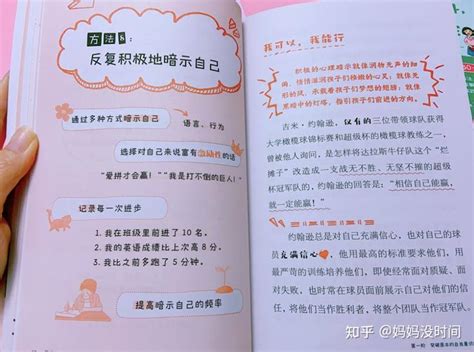 方法8:
反复积极地暗示自己
通过多种方式暗示自己
语言、行为
选择对自己来说富有激励性的话
“爱拼才会赢!”“我是打不倒的巨人!”
记录每一次进步
1. 我在班级里前进了 10 名。
2. 我的英语成绩比上次高 8 分。
3. 我比之前多跑了 5 分钟。
提高暗示自己的频率
我可以,我能行
积极的心理暗示就像润物无声的细
雨,悄悄滋润孩子们稚嫩的心灵;就像无
形的风,承载着孩子们梦想的翅膀;就像
黑暗中的灯塔,指引孩子们前进的方向。
吉米·约翰逊,仅有的三位带领球队获得
大学橄榄球锦标赛和超级杯的橄榄球教练之一,
曾被他人询问,是怎样将达拉斯牛仔队这个“烂
摊子”改造成一支战无不胜、无坚不摧的超级
杯冠军队的,约翰逊的回答是:“相信自己能赢,
就一定能赢!”
约翰逊总是对自己充满信心,也对自己的球
员充满信心,他用最高的标准要求他们,用
最严苛的训练培养他们,即使经常面对质疑、面
对失败,也时常在球员面前展示自己对他们的信
心,将他们当作胜利者,将整个团队当作冠军队。
知乎 @妈妈没时间